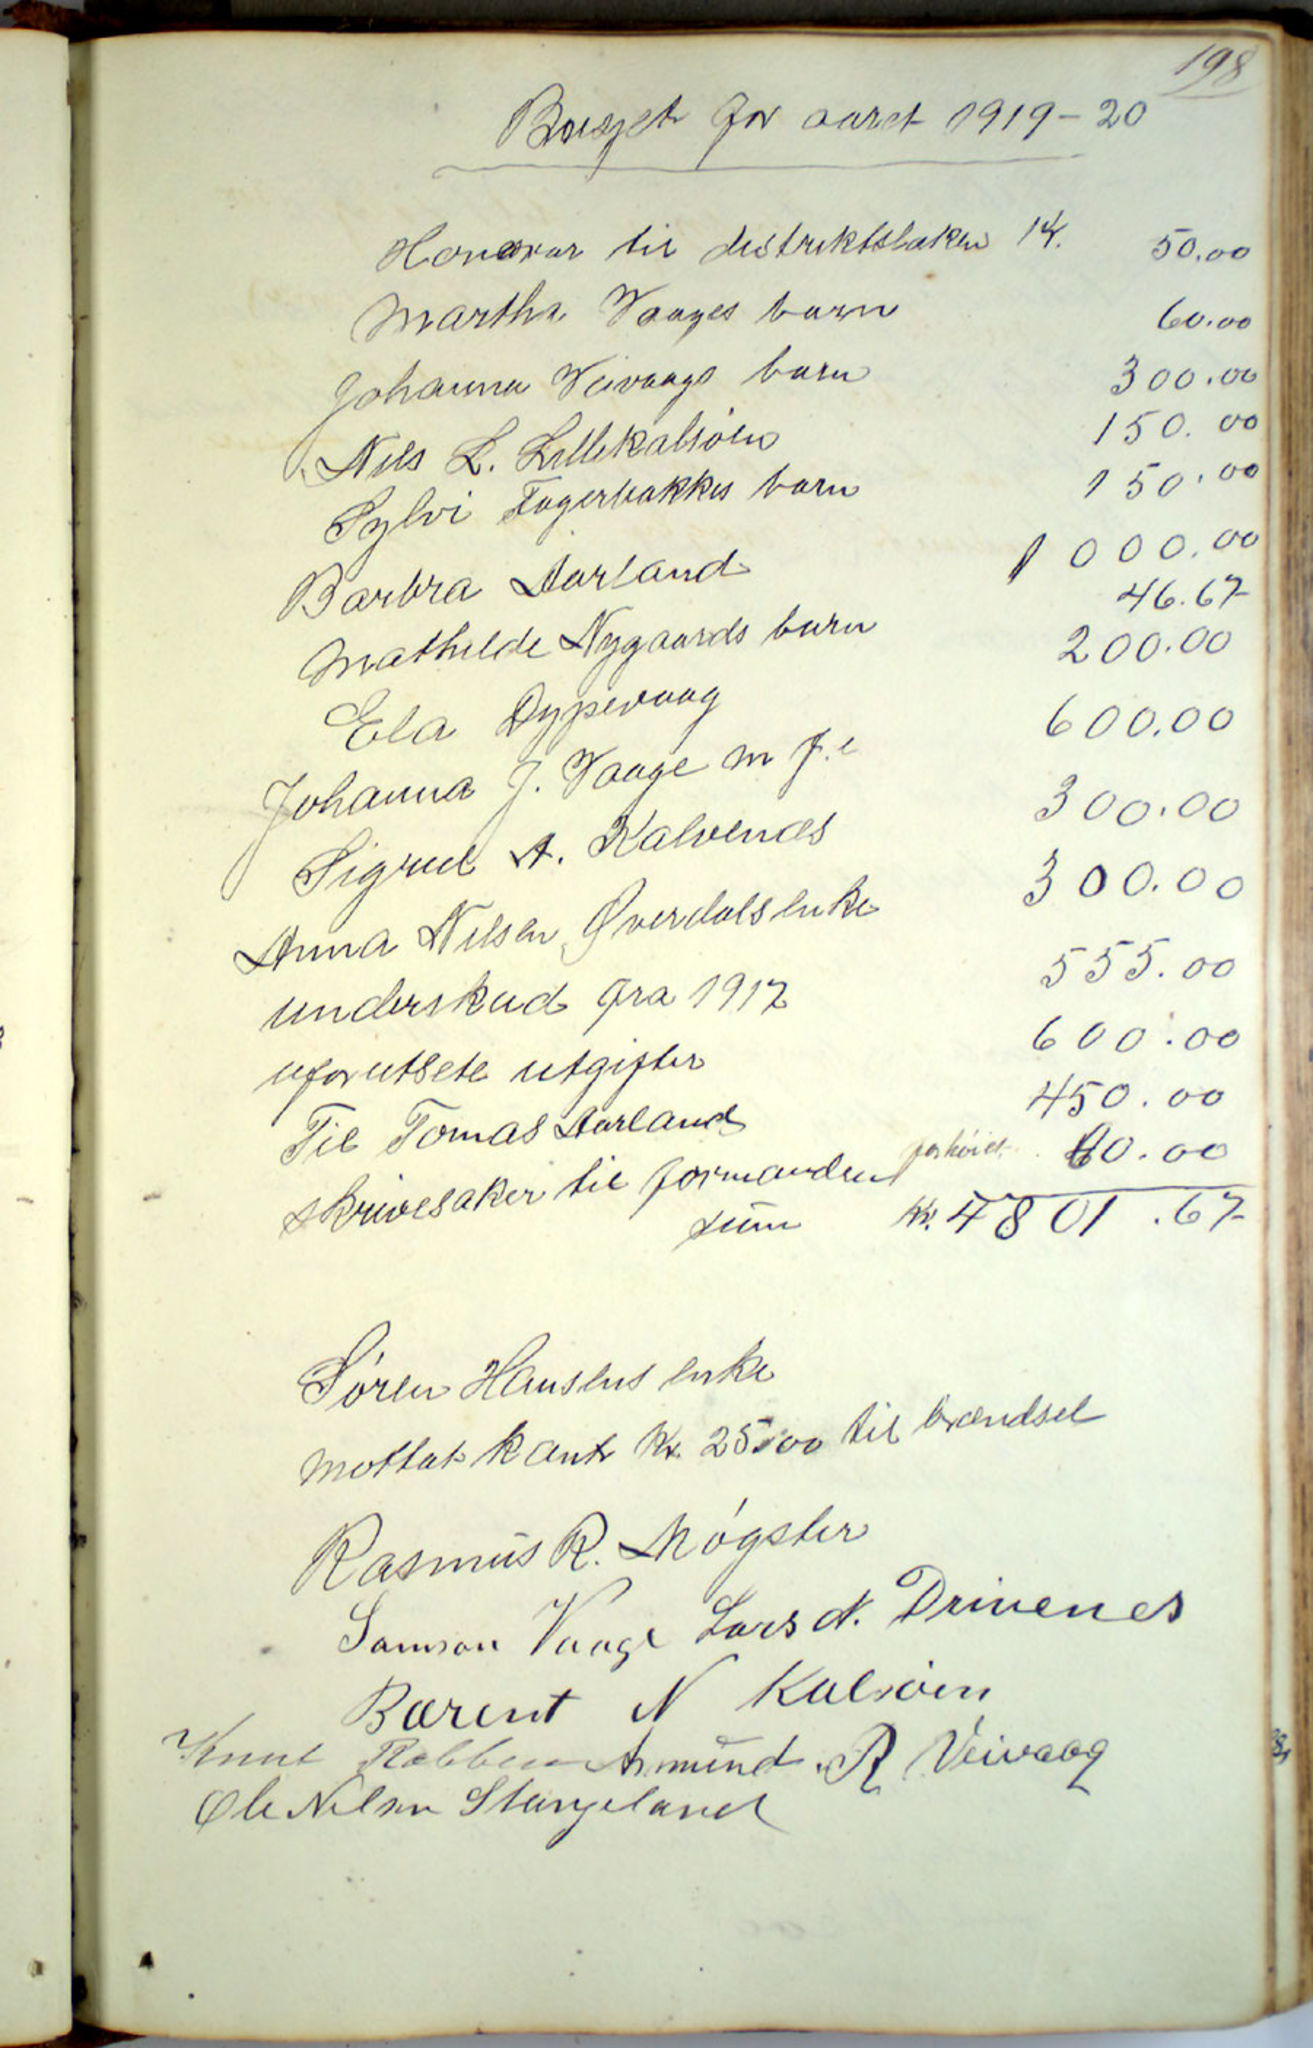 198
Budsjet for aaret 1919-20
Honorar til distriktslæken Kr. 50.00
Martha Vaages barn 60.00
Johanna Veivaags barn 300.00
Nils L. Lillekalsøen 150.00
Sylvi Fagerbakkes barn 150.00
Barbra Aarland 1000.00
Mathilde Nygaards barn 46.67
Ela Dypevaag 200.00
Johanna J. Vaage m f.l 600.00
Sigrud A. Kalvenæs 300.00
Anna Nilsen Øverdals enke 300.00
underskud fra 1917 555.00
uforutsete utgifter 600.00
Til Tomas Aarland 450.00
skrivesaker til formanden forhøiet 60.00
sum Kr. 4801.67
Søren Hansens enke
mottat kant kr. 25.00 til brændsel
Rasmus R. Møgster
Samson Vaage Lars N. Drivenes
Barent N Kalsøen
Knut Rabben Asmund R Veivaag
Ole Nilsen Stangeland